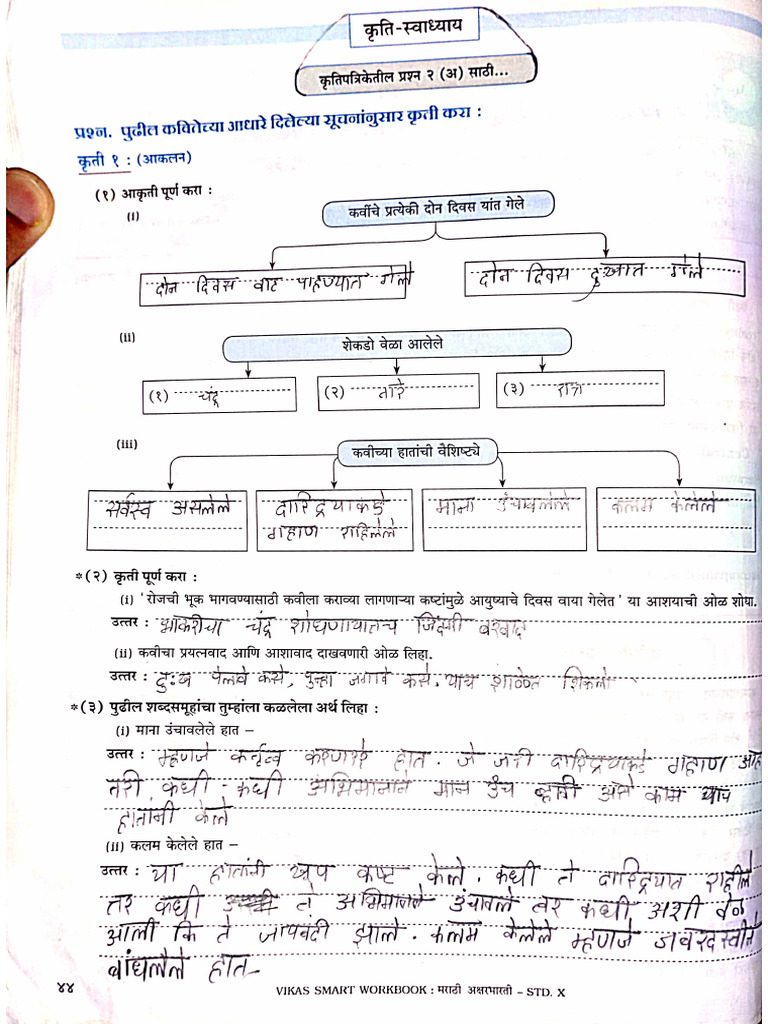 कृति-स्वाध्याय
कृतिपत्रिकेतील प्रश्न २ (अ) साठी...
प्रश्न. पुढील कवितेच्या आधारे दिलेल्या सूचनांनुसार कृती करा :
कृती १ : (आकलन)
(१) आकृती पूर्ण करा :
(i)
कवींचे प्रत्येकी दोन दिवस यांत गेले
दोन दिवस वाट पाहण्यात गेले
दोन दिवस दुःखात गेले
(ii)
शेकडो वेळा आलेले
(१) चंद्र
(२) तारे
(३) रात्र
(iii)
कवीच्या हातांची वैशिष्ट्ये
सर्वस्व असलेले
दारिद्र्याकडे
गहाण राहिलेले
माना उंचावलेले
कलम केलेले
*(२) कृती पूर्ण करा :
(i) 'रोजची भूक भागवण्यासाठी कवीला कराव्या लागणाऱ्या कष्टांमुळे आयुष्याचे दिवस वाया गेलेत' या आशयाची ओळ शोधा.
उत्तर : भाकरीचा चंद्र शोधण्यातच जिंदगी बरबाद
(ii) कवीचा प्रयत्नवाद आणि आशावाद दाखवणारी ओळ लिहा.
उत्तर : दुःख पेलवे कसे, पुन्हा जगावे कसे. याच शाळेत शिकलो
*(३) पुढील शब्दसमूहांचा तुम्हांला कळलेला अर्थ लिहा :
(i) माना उंचावलेले हात –
उत्तर : म्हणजे कर्तृत्व करणारे हात. जे जरी दारिद्र्याकडे गहाण
तरी कधी-कधी अभिमानाने मान उंच व्हावी असे काम याच
हातांनी केले
(ii) कलम केलेले हात –
उत्तर : या हातांनी खूप कष्ट केले. कधी ते दारिद्र्यात राहीले
तर कधी ते अभिमानाने उंचावले तर कधी अशी वेळ
आली कि ते जायबंदी झाले. कलम केलेले म्हणजे जबरदस्तीने
बांधलेले हात-
४४
VIKAS SMART WORKBOOK : मराठी अक्षरभारती – STD. X